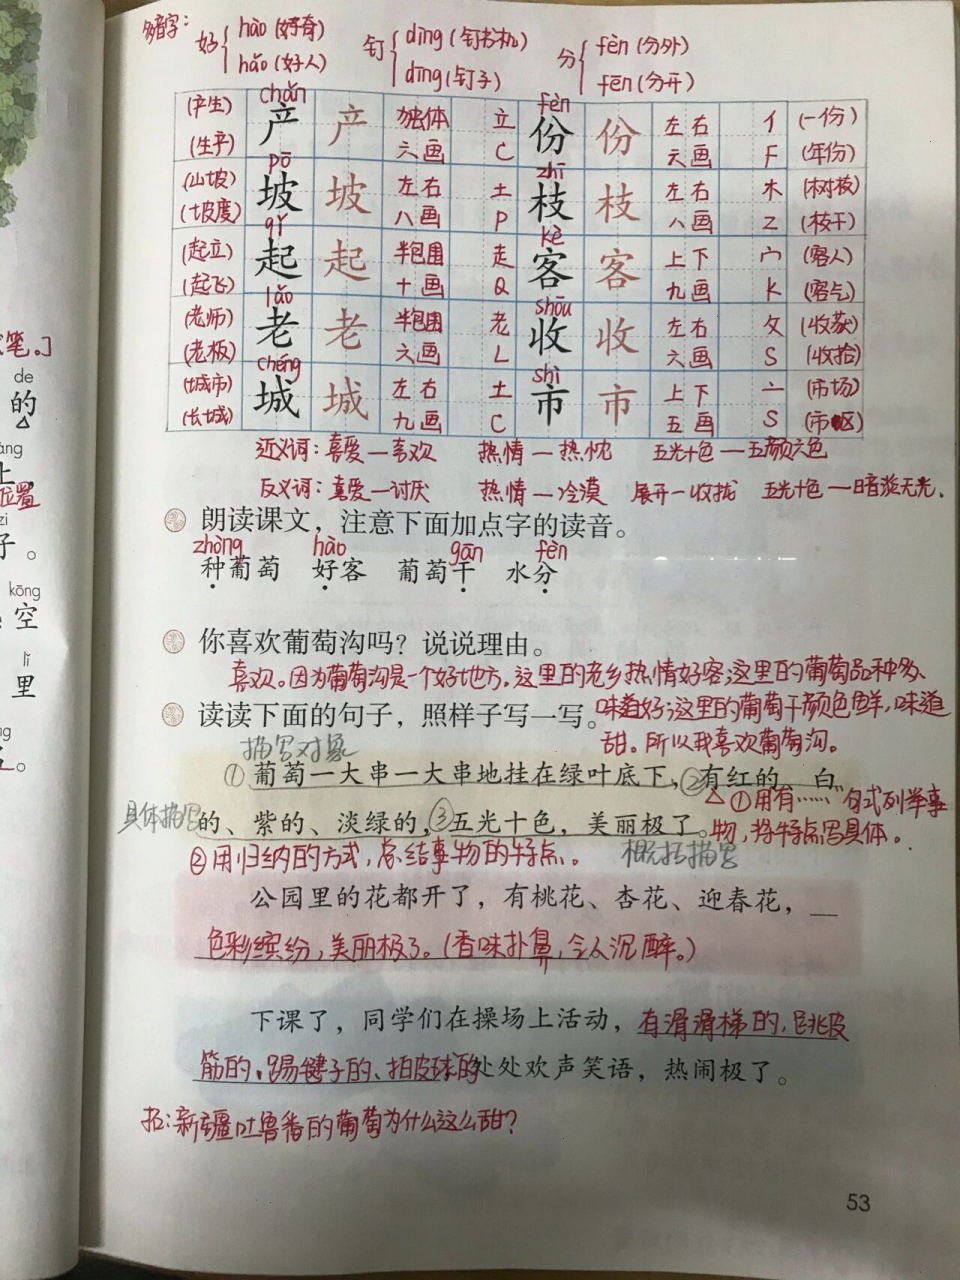 多音字：
好 { hào (好奇) 钉 { dìng (钉书机) 分 { fèn (分外)
hǎo (好人) dīng (钉子) fēn (分开)
chǎn fèn
(产生) 产 产 独体 立 份 份 左右 亻 (一份)
(生产) 六画 C 六画 F (年份)
pō zhī
(山坡) 坡 坡 左右 土 枝 枝 左右 木 (树枝)
(坡度) 八画 P 八画 Z (枝干)
qǐ kè
(起立) 起 起 半包围 走 客 客 上下 宀 (客人)
(起飞) 十画 Q 九画 K (客气)
lǎo shōu
(老师) 老 老 半包围 老 收 收 左右 攵 (收获)
(老板) 六画 L 六画 S (收拾)
chéng shì
(城市) 城 城 左右 土 市 市 上下 亠 (市场)
(长城) 九画 C 五画 S (市区)
近义词：喜爱—喜欢 热情—热忱 五光十色—五颜六色
反义词：喜爱—讨厌 热情—冷漠 展开—收拢 五光十色—暗淡无光.
朗读课文，注意下面加点字的读音。
zhòng hào gān fèn
种葡萄 好客 葡萄干 水分
你喜欢葡萄沟吗？说说理由。
喜欢。因为葡萄沟是一个好地方。这里的老乡热情好客;这里的葡萄品种多、
味道好;这里的葡萄干颜色鲜,味道
甜。所以我喜欢葡萄沟。
读读下面的句子，照样子写一写。
描写对象
①葡萄一大串一大串地挂在绿叶底下，②有红的、白
的、紫的、淡绿的，③五光十色，美丽极了。
具体描写
△①用有……句式列举事
物，将特点写具体。
②用归纳的方式，总结事物的特点。
概括描写
公园里的花都开了，有桃花、杏花、迎春花，
色彩缤纷，美丽极了。(香味扑鼻，令人沉醉。)
下课了，同学们在操场上活动，有滑滑梯的、跳皮
筋的、踢毽子的、拍皮球的 处处欢声笑语，热闹极了。
扩：新疆吐鲁番的葡萄为什么这么甜?
53
笔。]
de
的
△
àng
上，
位置
zi
子。
kōng
空
lǐ
里